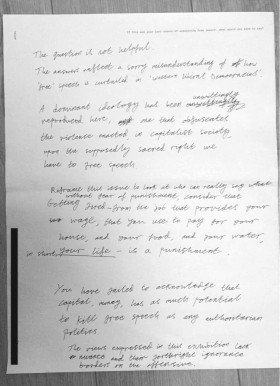 The question is not helpful.
The answers reflect a sorry misunderstanding of how
'free' speech is curtailed in 'western liberal democracies'.
A dominant ideology had been unwittingly
reproduced here, one that obfuscates
the violence enacted in capitalist society
upon the supposedly sacred right we
have to free speech.
Reframe this issue to look at who can really say what
without fear of punishment, consider that
Getting fired - from the job that provides your
wage, that you use to pay for your
house, and your food, and your water,
in short, your life - is a punishment.
You have failed to acknowledge that
capital, money, has as much potential
to kill free speech as any authoritarian
politics.
The views expressed in this exhibition lack
nuance and their forthright ignorance
borders on the offensive.